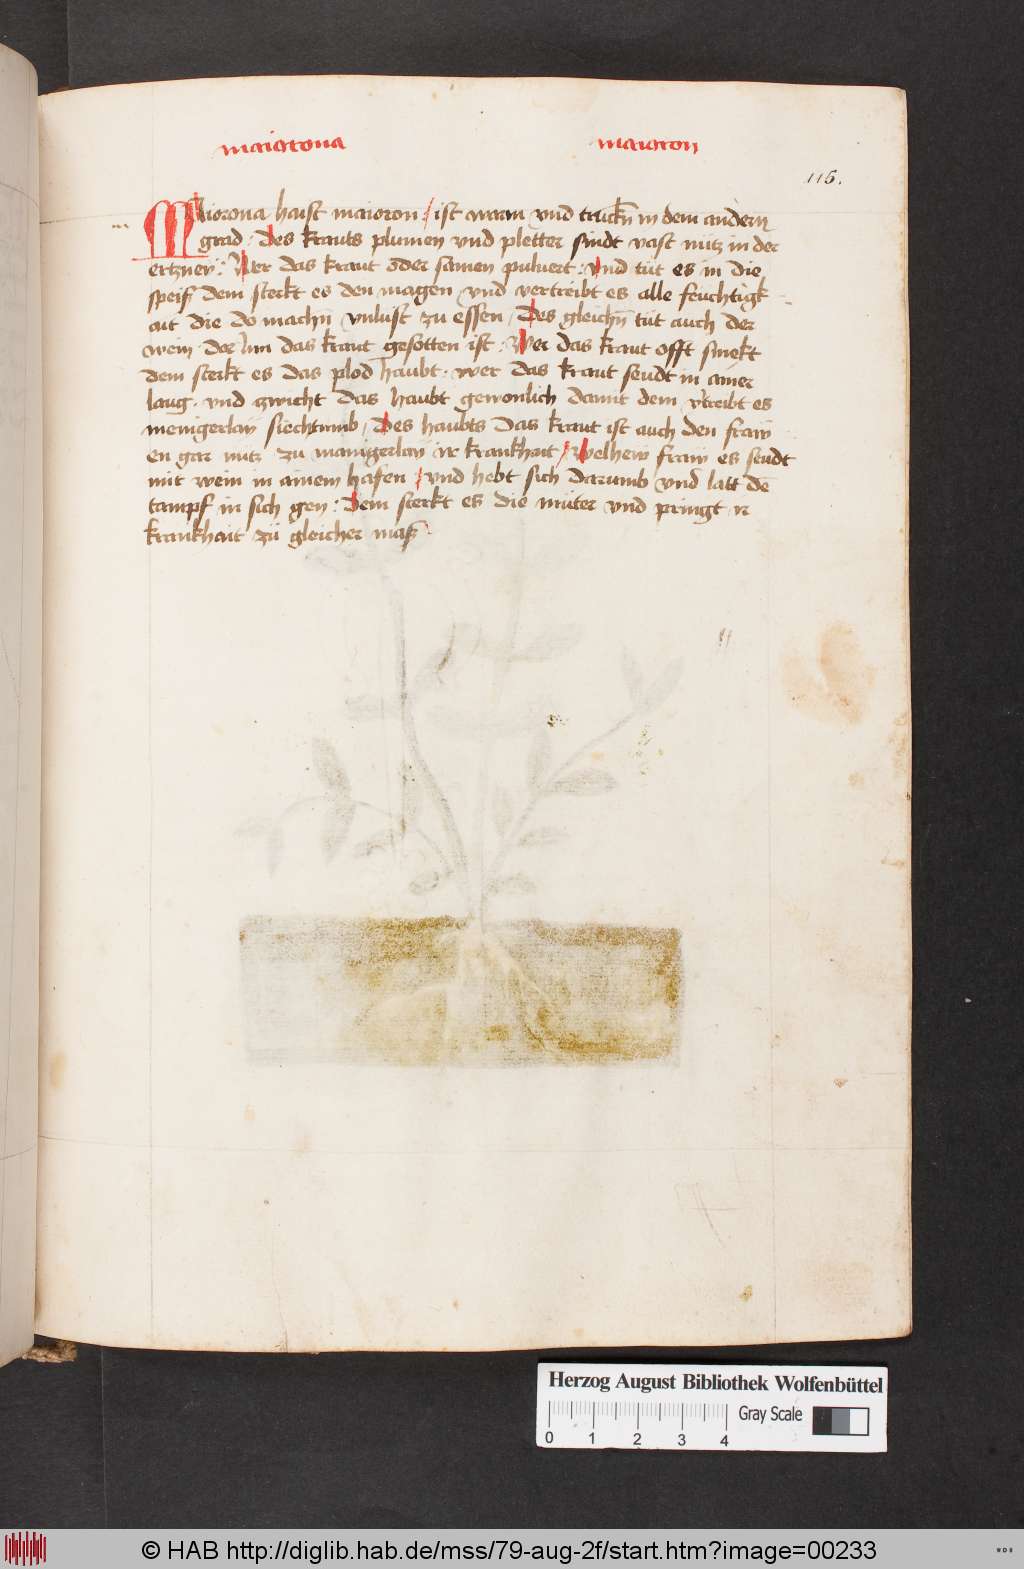 maiorona maioron
115.
Maiorona haist maioron / ist warm vnd truckñ in dem andern
grad : Des krauts plumen vnd pletter sindt vast nütz in der
ertzney : Wer das kraut oder samen puluert : vnd tüt es in die
speiß dem sterkt es den magen vnd vertreibt es alle feüchtigk
ait die do machñ vnlust zu essen / Des gleichñ tüt auch der
wein dor Inn das kraut gesotten ist : Wer das kraut offt smekt
dem sterkt es das plod haubt · wer das kraut seudt in ainer
laug · vnd zwicht das haubt gewonlich damit dem v'treibt es
menigerlaÿ siechtumb / Des haubts Das kraut ist auch den fraw
en gar nütz zu manigerlaÿ ir krankhait / Welhew fraw es seudt
mit wein in ainem hafen / vnd hebt sich darumb vnd latt dē
tampf in sich gen : Dem sterkt es die müter vnd pringt ir
krankhait zü gleicher maß ·
Herzog August Bibliothek Wolfenbüttel
0 1 2 3 4 Gray Scale
© HAB http://diglib.hab.de/mss/79-aug-2f/start.htm?image=00233